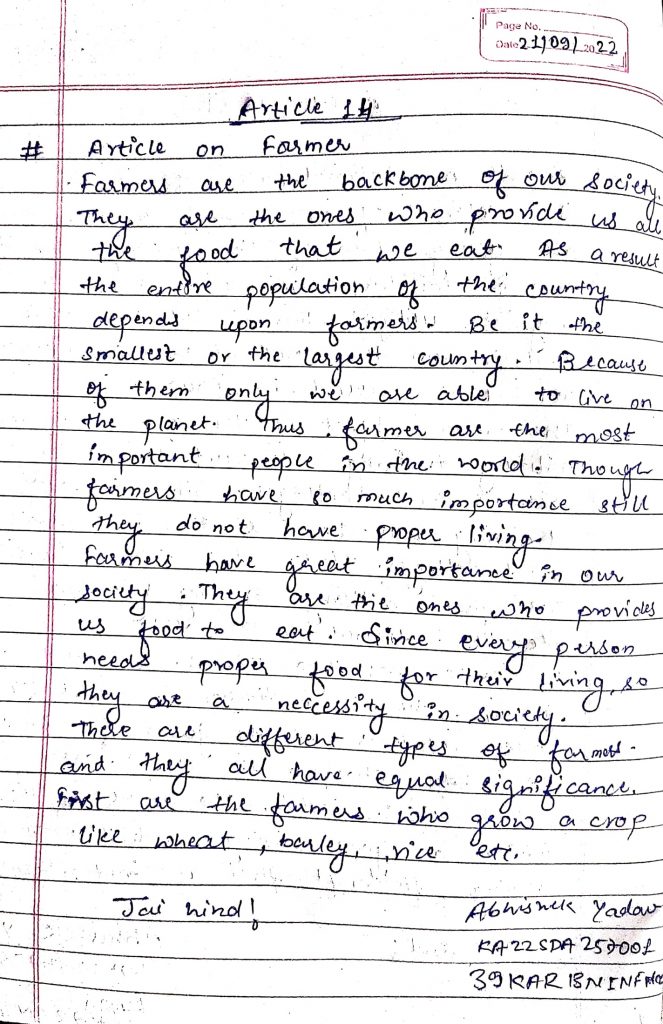 Page No.
Date 21/09/2022
Article 14
# Article on Farmer
Farmers are the backbone of our society.
They are the ones who provide us all
the food that we eat. As a result
the entire population of the country
depends upon farmers. Be it the
smallest or the largest country. Because
of them only we are able to live on
the planet. Thus farmer are the most
important people in the world. Though
farmers have so much importance still
they do not have proper living.
Farmers have great importance in our
society. They are the ones who provides
us food to eat. Since every person
needs proper food for their living, so
they are a neccessity in society.
There are different types of
and they all have equal significance.
First are the farmers who grow a crop
like wheat, barley, rice etc.
Jai hind!
Abhishek Yadav
KA22SDA257001
39 KAR BN INF